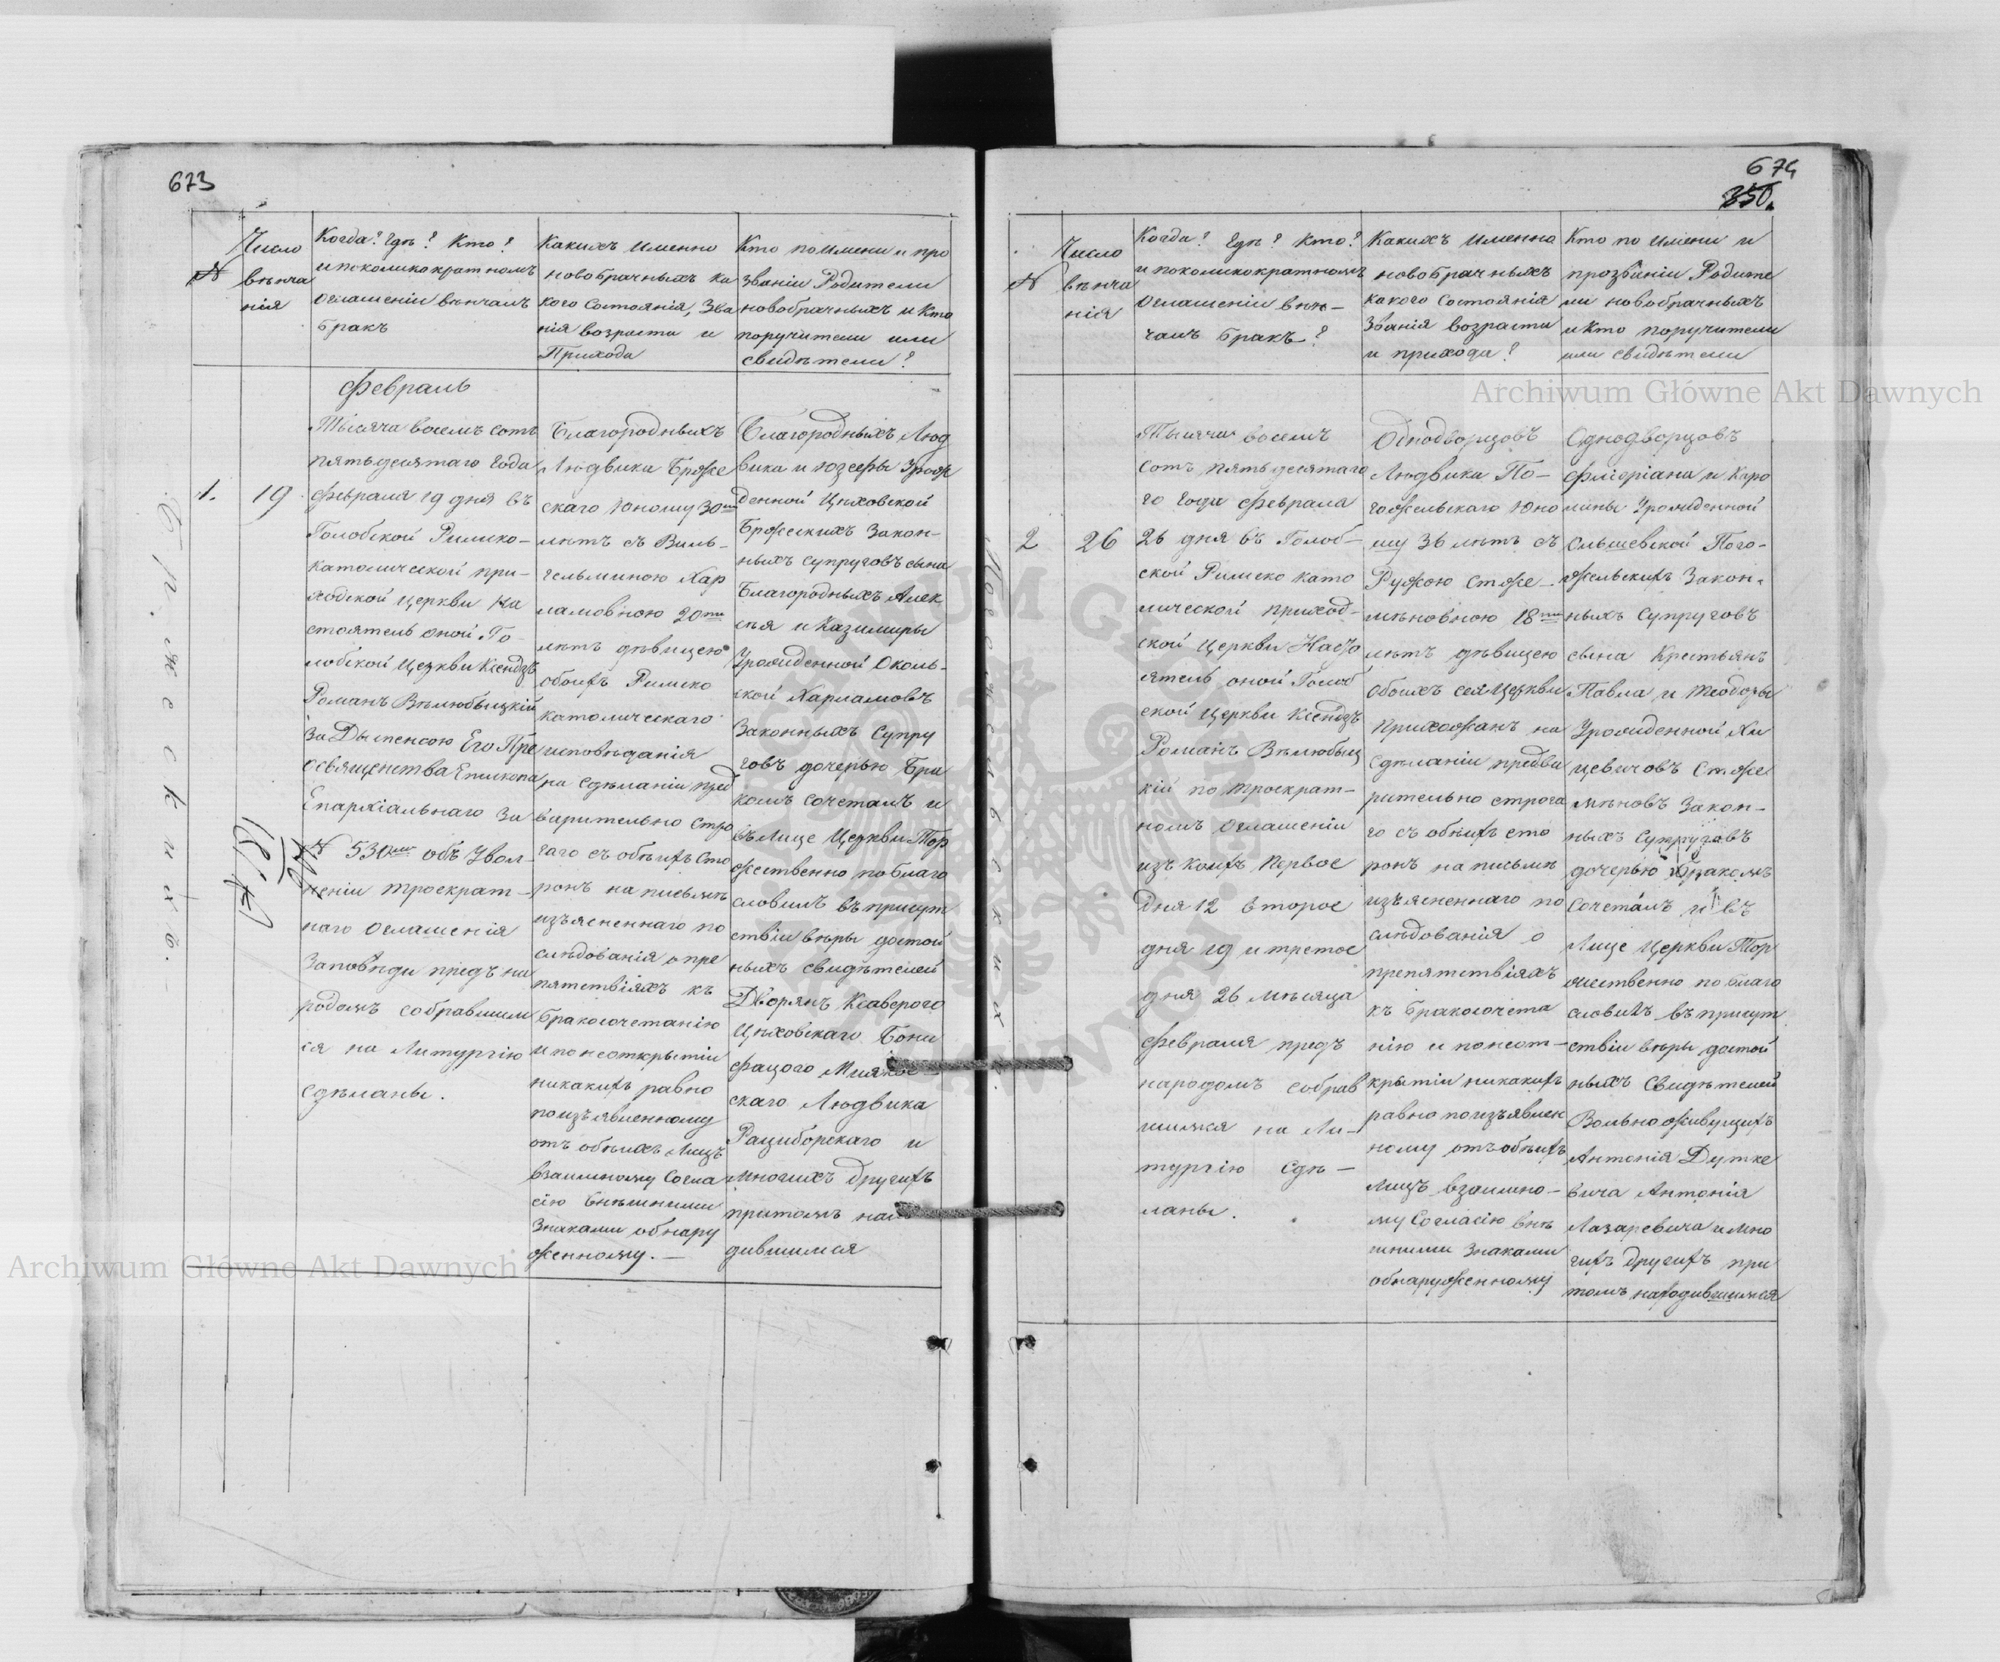 673
№
Число
вѣнча
нія
Когда? Гдѣ? Кто?
и поколикократномъ
оглашеніи вѣнчалъ
бракъ
Какихъ именно
новобрачныхъ ка
кого состоянія, зва
нія возраста и
Прихода
Кто по имени и про
званіи Родители
новобрачныхъ и кто
поручители или
свидѣтели?
Февраль
1.
19
Тысяча восемъ сотъ
пятьдесятаго года
Февраля 19 дня въ
Голобской Римско-
католической при-
ходской церкви На
стоятель оной Го-
лобской Церкви Ксендзъ
Романъ Вѣлюбыцкій
За Дыспенсою Его Пре
освященства Епископа
Епархіальнаго За
№ 530мъ объ Увол-
неніи троекрат-
наго оглашенія
Заповѣди предъ на
родомъ собравшим
ся на Литургію
сдѣланы.
Благородныхъ
Людвика Брже
скаго Юношу 30ти
лѣтъ съ Виль-
гельминою Хар
ламовною 20ти
лѣтъ дѣвицею
обоихъ Римско
католическаго
исповѣданія
на сдѣланіи пред
варительно стро
гаго съ обѣихъ сто
ронъ на письмѣ
изъясненнаго по
слѣдованія о пре
пятствіяхъ къ
бракосочетанію
и по неоткрытіи
никакихъ равно
по изъявленному
отъ обѣихъ лицъ
взаимному согла
сію внѣшними
знаками обнару
женному. —
Благородныхъ Люд
вика и Юзефы Урож
денной Цѣховской
Бржескихъ Закон-
ныхъ супруговъ сына
Благородныхъ Алек
сѣя и Казимиры
Урожденной Околь-
ской Харламовъ
Законныхъ Супру
говъ дочерью бра
комъ сочеталъ и
въ Лице Церкви Тор
жественно поблаго
словилъ въ присут
ствіи вѣры достой
ныхъ свидѣтелей
Дворянъ Ксаверого
Цѣховскаго Бони
фацого
скаго Людвика
Рациборскаго и
многихъ другихъ
притомъ нахо
дившимся
674
350.
№
Число
вѣнча
нія
Когда? Гдѣ? Кто?
и поколикократномъ
оглашеніи вѣн-
чалъ бракъ?
Какихъ именно
новобрачныхъ
какого состоянія
Званія возраста
и прихода?
Кто по имени и
прозваніи Родите
ли новобрачныхъ
и кто поручители
или свидѣтели
2
26
Тысяча восемъ
сотъ пятьдесята
го года Февраля
26 дня въ Голоб-
ской Римско като
лической приход-
ской Церкви Насто
ятель оной Голоб
ской Церкви Ксендзъ
Романъ Вѣлюбыц
кій по троекрат-
номъ оглашеніи
изъ коихъ Первое
дня 12 второе
дня 19 и третое
дня 26 мѣсяца
Февраля предъ
народомъ собрав
шимся на Ли-
тургію сдѣ-
ланы.
Однодворцовъ
Людвика По-
гожельскаго Юно
шу 36 лѣтъ съ
Ружою Стже-
мѣновною 18ти
лѣтъ дѣвицею
обоихъ сея Церкви
Прихожанъ на
сдѣланіи предва
рительно строга
го съ обѣихъ сто
ронъ на письмѣ
изъясненнаго по
слѣдованія о
препятствіяхъ
къ бракосочета
нію и по неот-
крытіи никакихъ
равно по изъявлен
ному отъ обѣихъ
лицъ взаимно-
му согласію внѣ
шними знаками
обнаруженному
Однодворцовъ
Флоріана и Каро
лины Урожденной
Ольшевской Пого-
жельскихъ Закон-
ныхъ Супруговъ
сына Крестьянъ
Павла и Теодоры
Урожденной
цевичовъ Стже
мѣновъ Закон-
ныхъ Супруговъ
дочерью бракомъ
сочеталъ и въ
Лице Церкви Тор
жественно поблаго
словилъ въ присут
ствіи вѣры достой
ныхъ Свидѣтелей
Вольноживущихъ
Антонія Дутке
вича Антонія
Лазаревича и мно
гихъ другихъ при
томъ находившимся
Archiwum Główne Akt Dawnych
Archiwum Główne Akt Dawnych